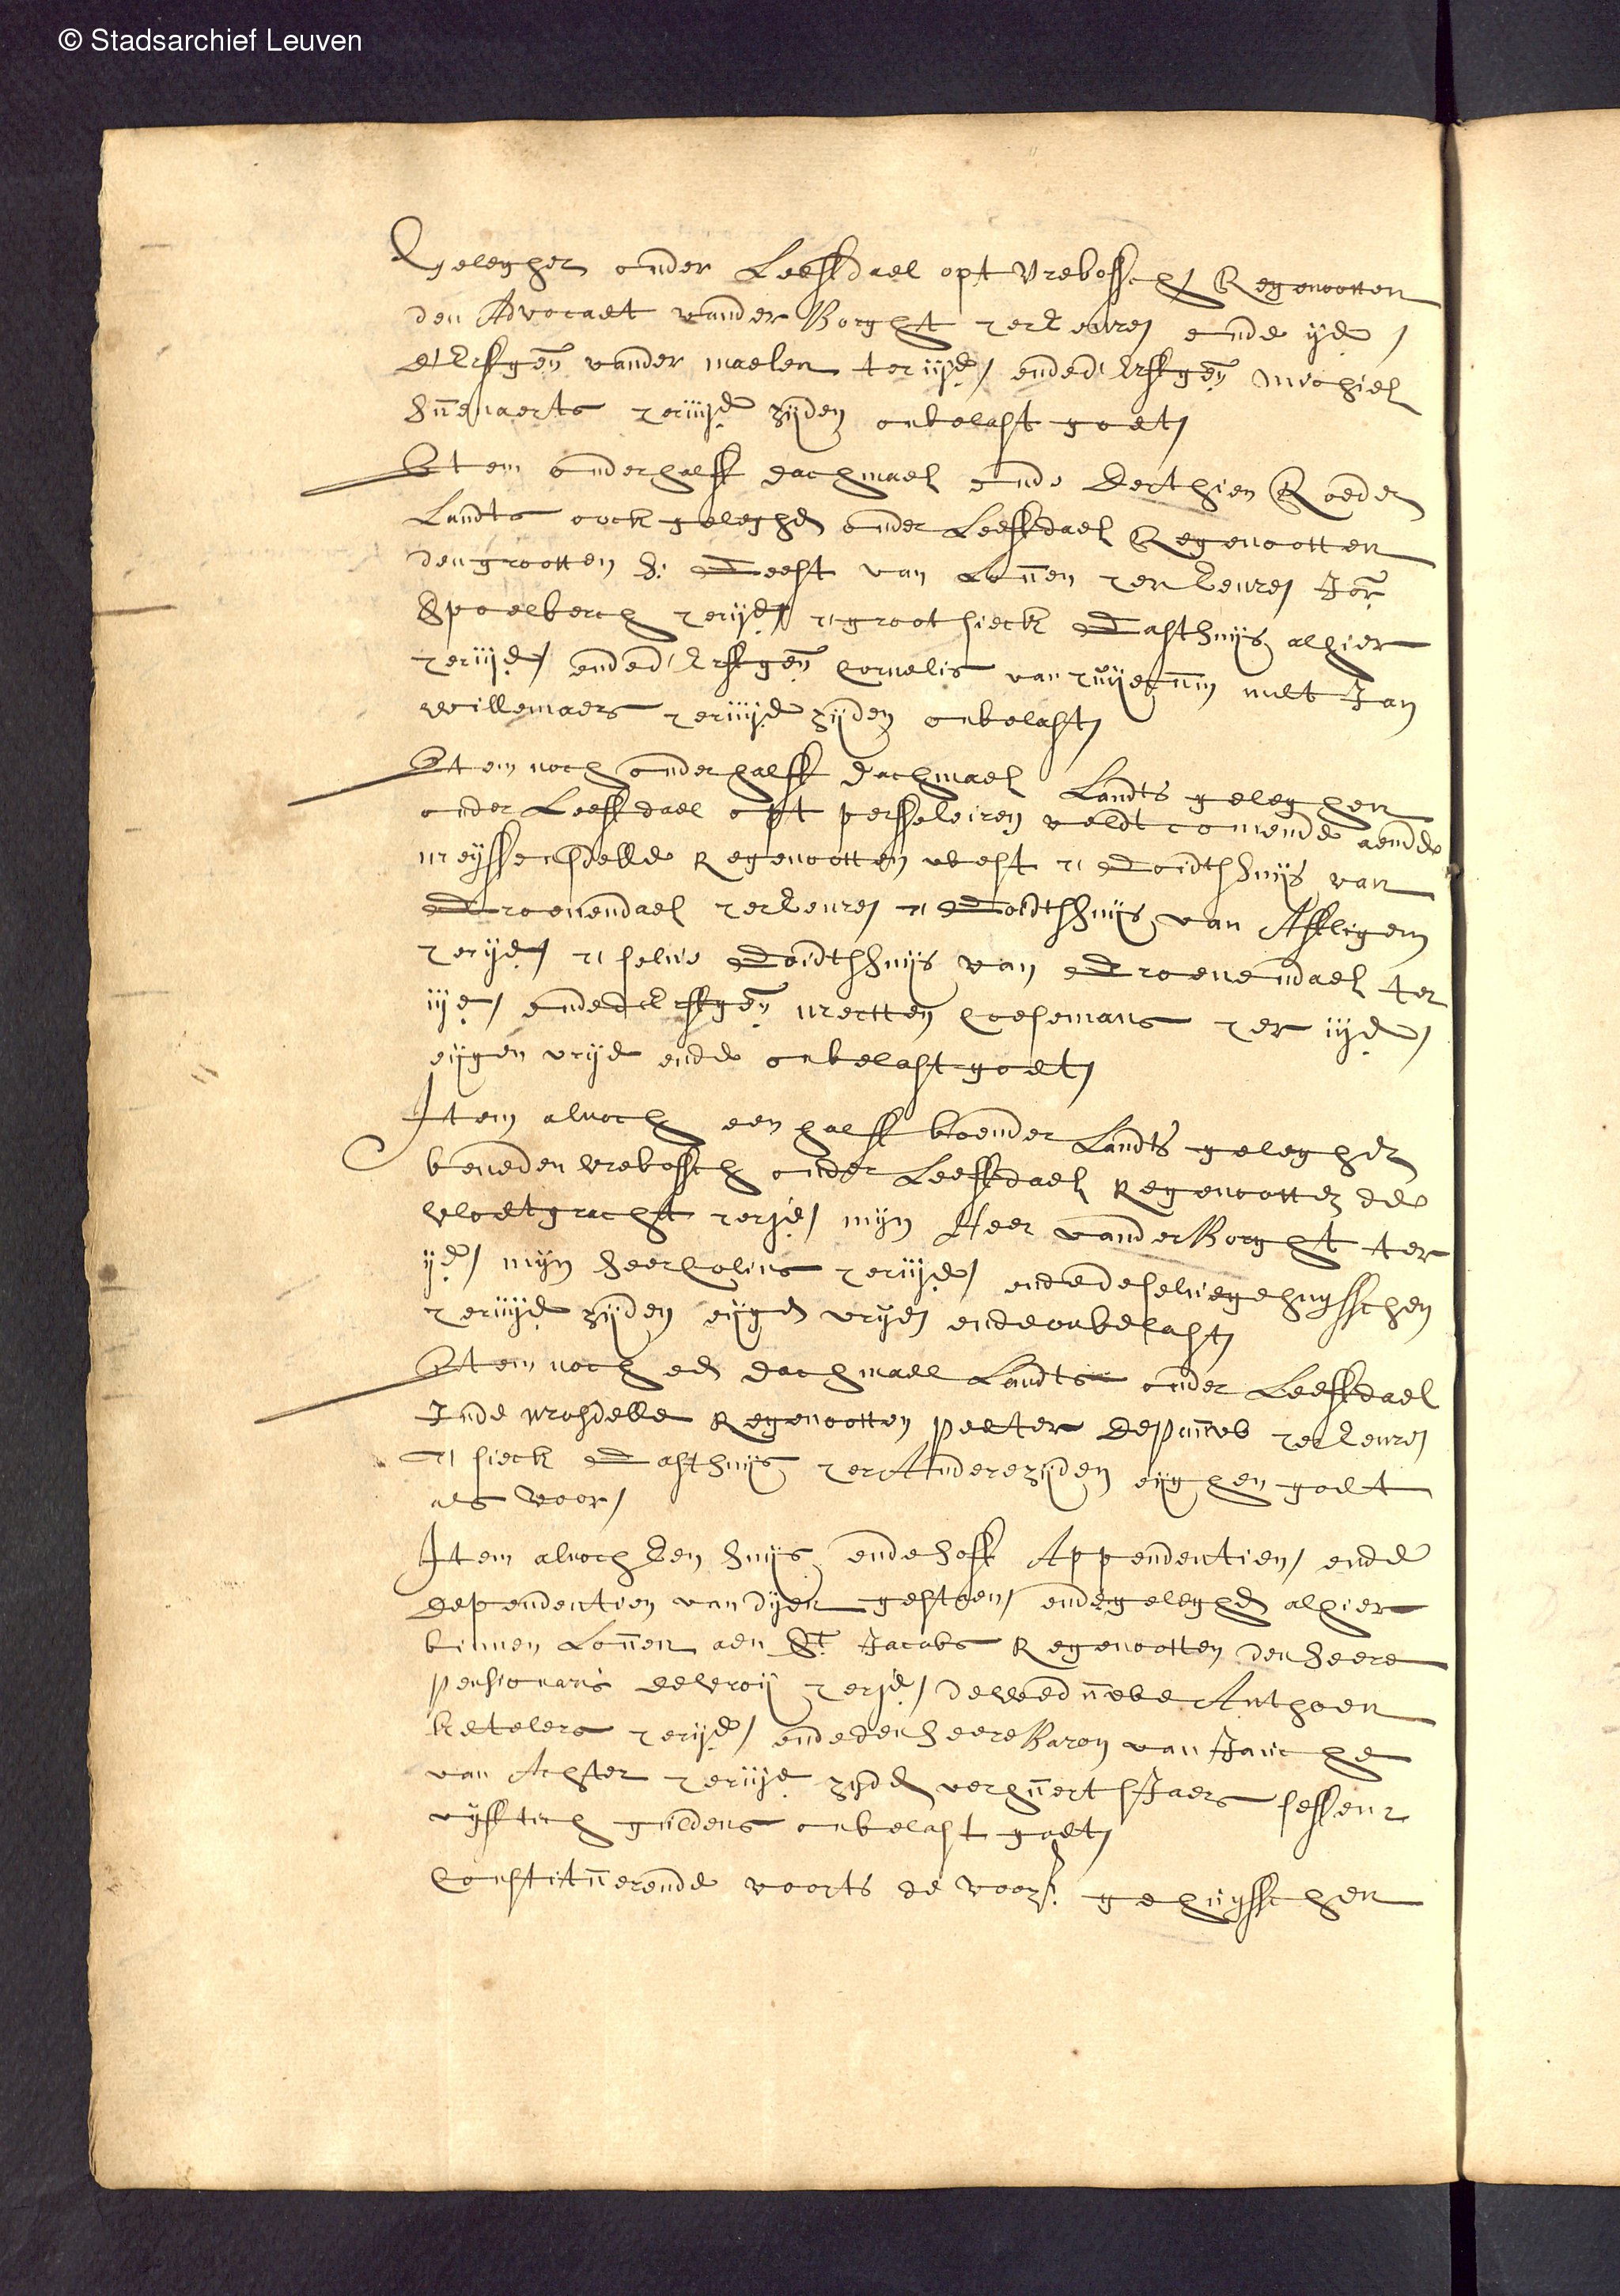 © Stadsarchief Leuven
Geleghen onder Leeffdael opt Vrebossch Regenooten
den Advocaet vander Borght ter eenre ende ije
d'Erffgen vander maelen ter iije ended' Erffgen Michiel
ter iiije zijden onbelast goet
Item onderhalff dachmael ende derthien Roeden
Landts oock geleghen onder Leeffdael Regenootten
den grootten H. Geest van Loven ter eenre Jor
Spoelberch ter ije t' groot sieck Gasthuijs alhier
ter iije ended' Erffgen Cornelis van met Jan
Willemaers ter iiije zijden onbelast
Item noch onderhalff dachmael Landts geleghen
onder Leeffdael opt veldt comende aende
Regenootten west t' Goidtshuijs van
Groenendael ter eenre t' Goidtshuijs van Affligem
ter ije t' selve Goidtshuijs van Groenendael ter
iije ended' Erffgen Merten Coosemans ter iije
eijgen vrije ende onbelast goet
Item alnoch een halff boender Landts geleghen
beneden Vrebossch onder Leeffdael Regenootten de
Vloetgracht ter je mijn Heer vander Borght ter
ije mijn heer Colins ter iije ende de selve gehuysschen
ter iiije zijden eijgen vrije ende onbelast
Item noch een dachmael Landts onder Leeffdael
Inde Regenootten Peeter ter eenre
t' sieck Gasthuijs ter Andere zijden eijghen goet
als voor
Item alnoch Een huijs ende hoff Appendentien ende
dependentien van dijen gestaen ende geleghen alhier
binnen Loven aen St Jacobs Regenootten den heere
Pensionaris de Vroij ter je de weduwe Anthoen
Ketelers ter ije ende den heere Baron van Jauche
van Achter ter iije zijden verhuert sJaers sessen
vijfftich guldens onbelast goet
Constituerende voorts de voors. gehuysschen